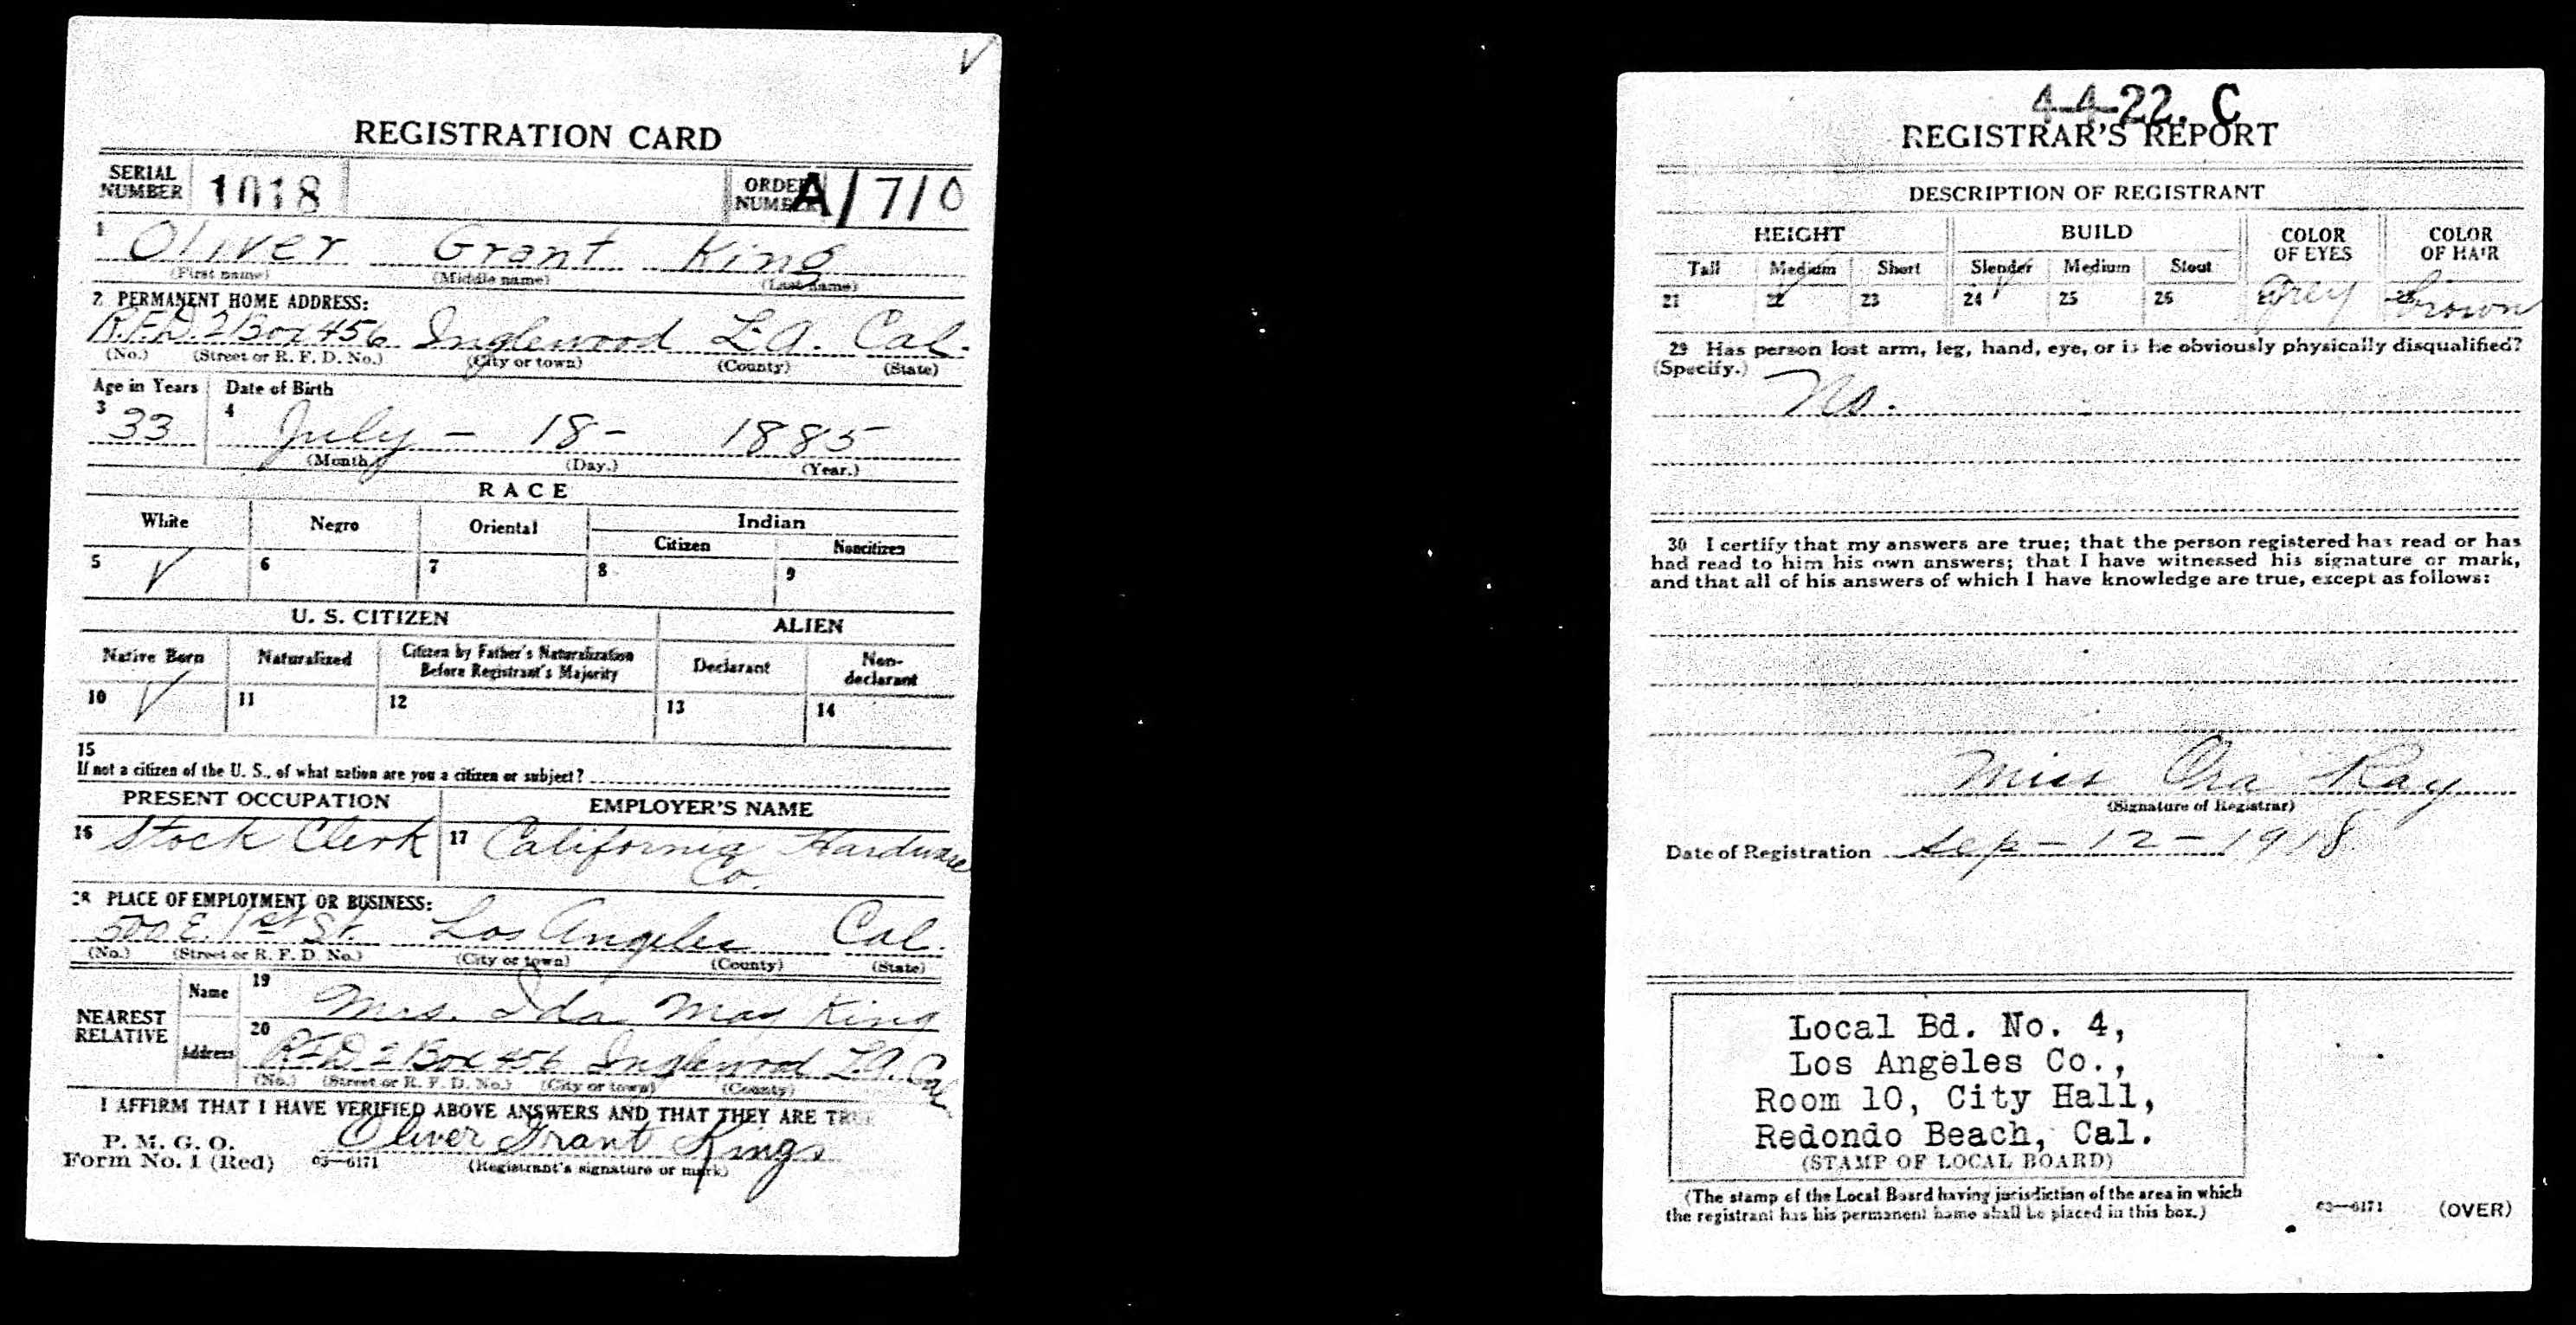 REGISTRATION CARD
SERIAL NUMBER 1018 ORDER NUMBER A1710
1 Oliver Grant King
(First name) (Middle name) (Last name)
2 PERMANENT HOME ADDRESS:
R.F.D. 2 Box 456 Inglewood L.A. Cal.
(No.) (Street or R. F. D. No.) (City or town) (County) (State)
Age in Years Date of Birth
3 33 4 July - 18 - 1885
(Month.) (Day.) (Year.)
RACE
White Negro Oriental Indian
Citizen Noncitizen
5 ✓ 6 7 8 9
U. S. CITIZEN ALIEN
Native Born Naturalized Citizen by Father's Naturalization Before Registrant's Majority Declarant Non-declarant
10 ✓ 11 12 13 14
15
If not a citizen of the U. S., of what nation are you a citizen or subject?
PRESENT OCCUPATION EMPLOYER'S NAME
16 Stock Clerk 17 California Hardware
Co.
18 PLACE OF EMPLOYMENT OR BUSINESS:
500 E. 1st St. Los Angeles Cal.
(No.) (Street or R. F. D. No.) (City or town) (County) (State)
NEAREST RELATIVE
Name 19 Mrs. Ida May King
Address 20 R.F.D 2 Box 456 Inglewood L.A. Cal
(No.) (Street or R. F. D. No.) (City or town) (County)
I AFFIRM THAT I HAVE VERIFIED ABOVE ANSWERS AND THAT THEY ARE TRUE
P. M. G. O.
Form No. 1 (Red) 03—6171 Oliver Grant King
(Registrant's signature or mark)
4-4-22. C
REGISTRAR'S REPORT
DESCRIPTION OF REGISTRANT
HEIGHT BUILD COLOR OF EYES COLOR OF HAIR
Tall Medium Short Slender Medium Stout
21 22 23 24 25 26 Grey brown
29 Has person lost arm, leg, hand, eye, or is he obviously physically disqualified?
(Specify.) No.
30 I certify that my answers are true; that the person registered has read or has
had read to him his own answers; that I have witnessed his signature or mark,
and that all of his answers of which I have knowledge are true, except as follows:
Miss Ora Ray
(Signature of Registrar)
Date of Registration Sep - 12 - 1918
Local Bd. No. 4,
Los Angeles Co.,
Room 10, City Hall,
Redondo Beach, Cal.
(STAMP OF LOCAL BOARD)
(The stamp of the Local Board having jurisdiction of the area in which
the registrant has his permanent home shall be placed in this box.)
03—6171 (OVER)